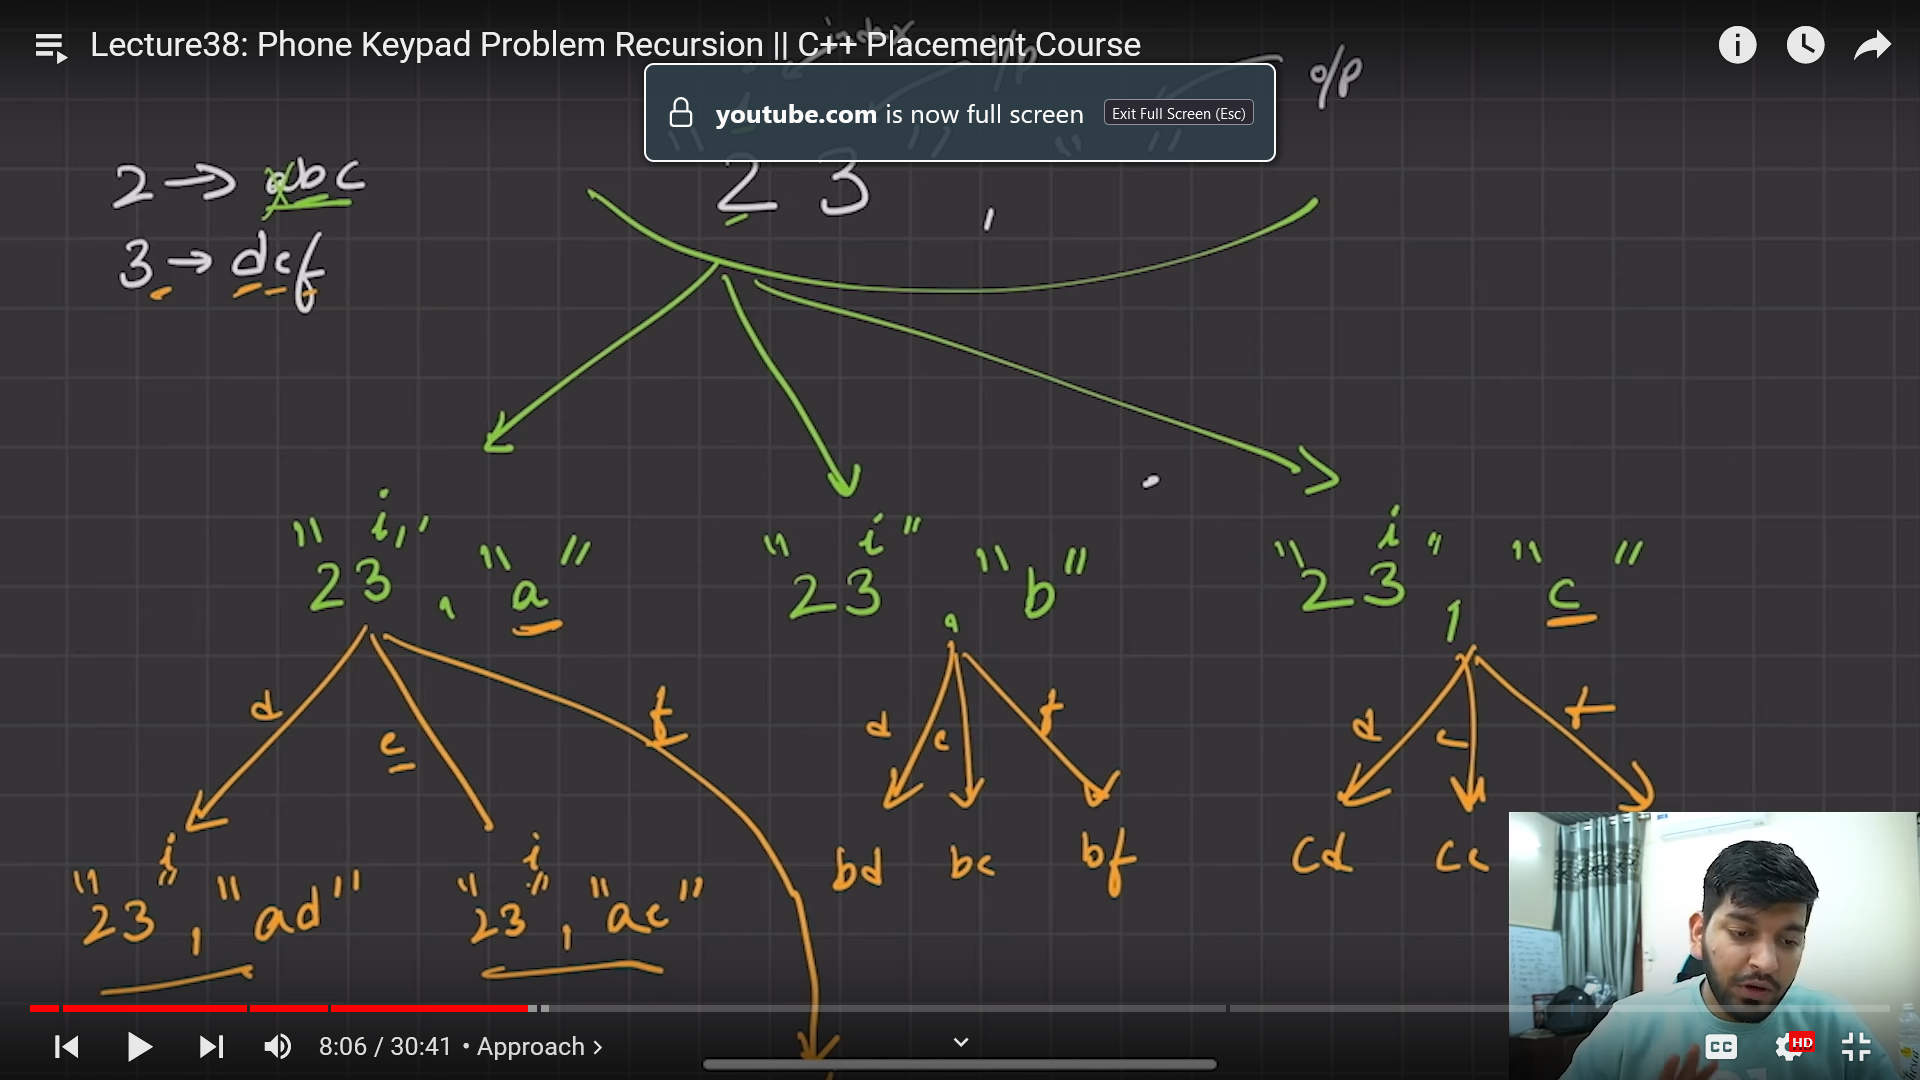 Lecture38: Phone Keypad Problem Recursion || C++ Placement Course
index
i/p
o/p
youtube.com is now full screen
Exit Full Screen (Esc)
2 → abc
3 → def
" 23 " , " "
i i i
"23", "a"
"23", "b"
"23", "c"
d e f
d e f
d e f
bd be bf
cd ce
i i
"23", "ad"
"23", "ae"
8:06 / 30:41 • Approach >
CC
HD